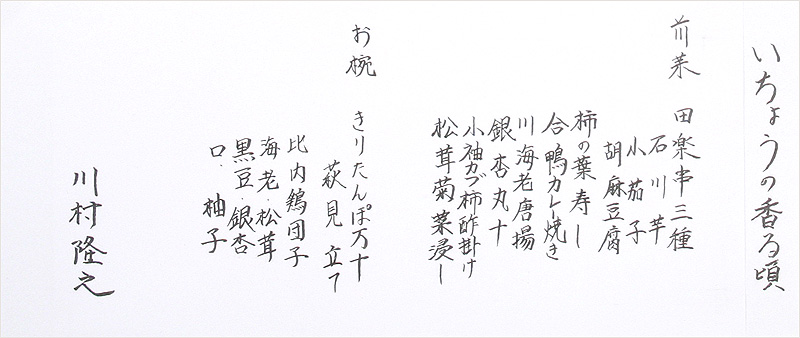 いちょうの香る頃
前菜 田楽串三種
石川芋
小茄子
胡麻豆腐
柿の葉寿し
合鴨カレー焼き
川海老唐揚
銀杏丸十
小袖カブ柿酢掛け
松茸菊菜浸し
お椀 きりたんぽ万十
萩見立て
比内鶏団子
海老・松茸
黒豆・銀杏
口・柚子
川村隆之